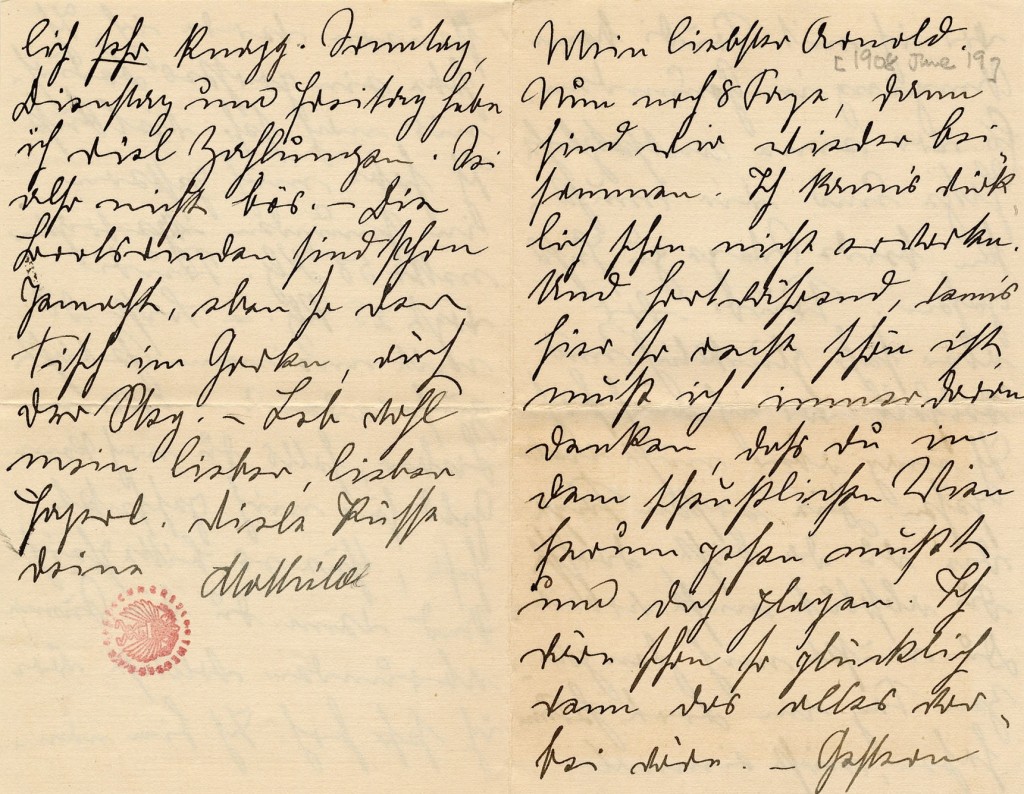 Mein liebster Arnold.
[1908 June 19?]
Nun noch 8 Tage, dann
sind wir wieder bei-
sammen. Ich kann's wirk
lich schon nicht erwarten.
Und fortwährend, wenn's
hier so recht schön ist,
muß ich immer daran
denken, dass du in
dem scheußlichen Wien
herum gehen mußt
und dich plagen. Ich
wäre schon so glücklich
wenn das alles vor-
bei wäre. – Gestern
lich sehr knapp. Sonntag,
Dienstag und Freitag habe
ich viel Zahlungen. Sei
also nicht bös. – Die
sind schon
gemacht, eben so der
Tisch im Garten, auch
der Steg. – Leb wohl
mein lieber, lieber
Viele Küsse
deine Mathilde